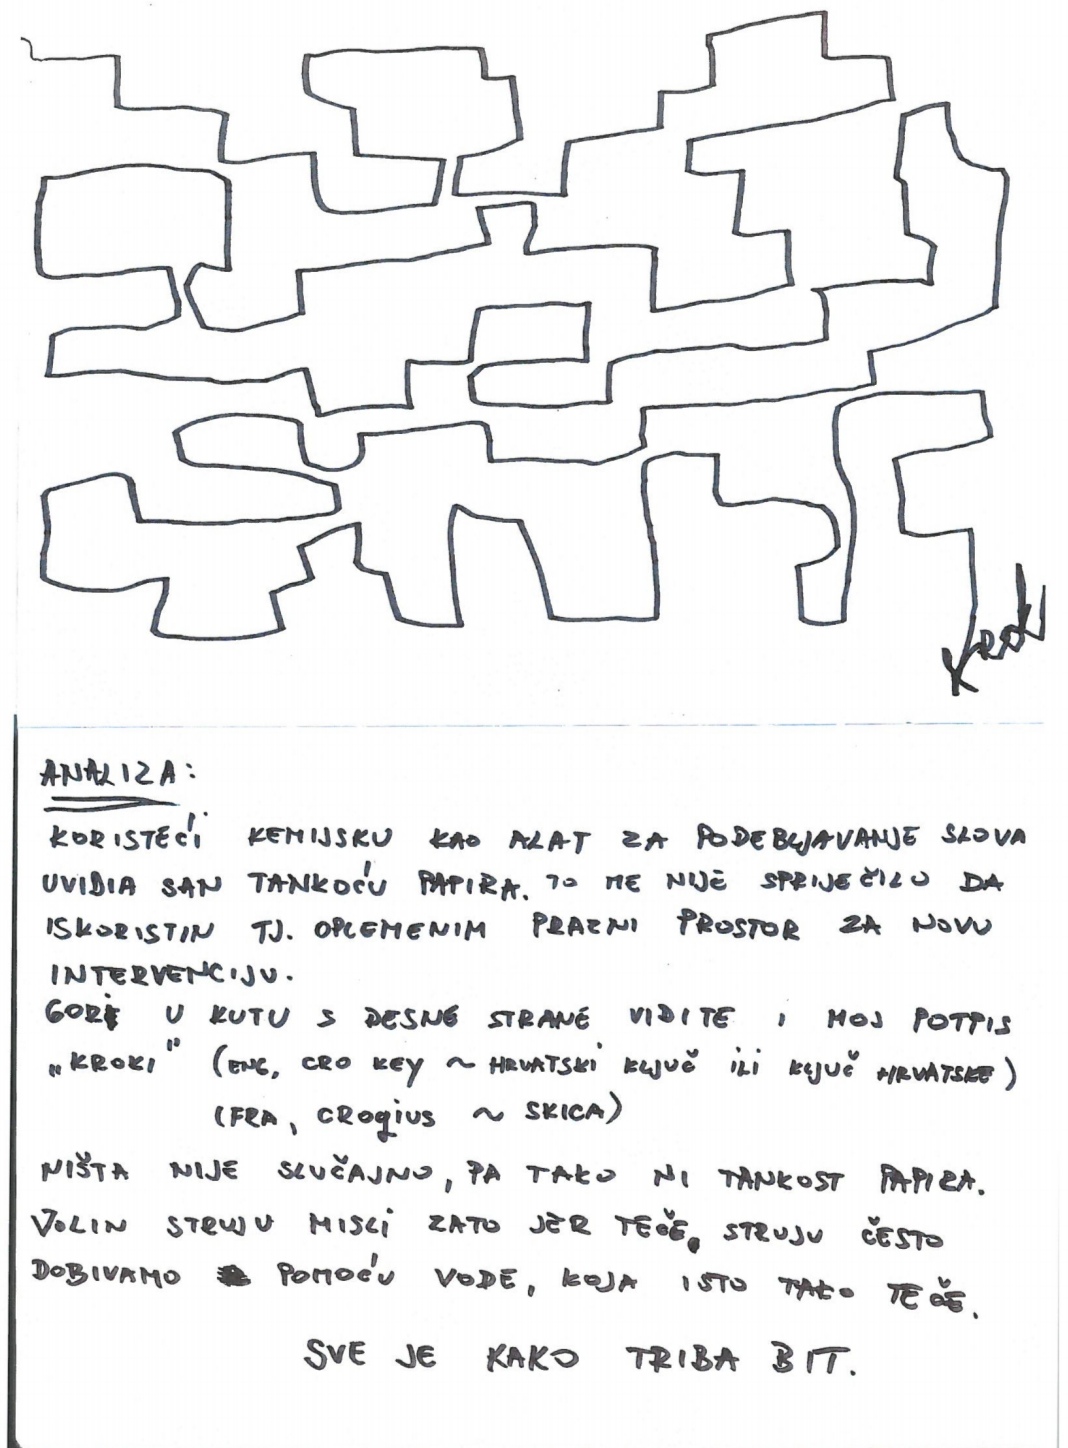 Kroki
ANALIZA:
KORISTEĆI KEMIJSKU KAO ALAT ZA PODEBLJAVANJE SLOVA
UVIDIA SAN TANKOĆU PAPIRA. TO ME NIJE SPRIJEČILO DA
ISKORISTIN TJ. OPLEMENIM PRAZNI PROSTOR ZA NOVU
INTERVENCIJU.
GORE U KUTU S DESNE STRANE VIDITE I MOJ POTPIS
„KROKI" (ENG, CRO KEY ~ HRVATSKI KLJUČ ILI KLJUČ HRVATSKE)
(FRA, CROqius ~ SKICA)
NIŠTA NIJE SLUČAJNO, PA TAKO NI TANKOST PAPIRA.
VOLIN STRUJU MISLI ZATO JER TEČE, STRUJU ČESTO
DOBIVAMO POMOĆU VODE, KOJA ISTO TAKO TEČE.
SVE JE KAKO TRIBA BIT.